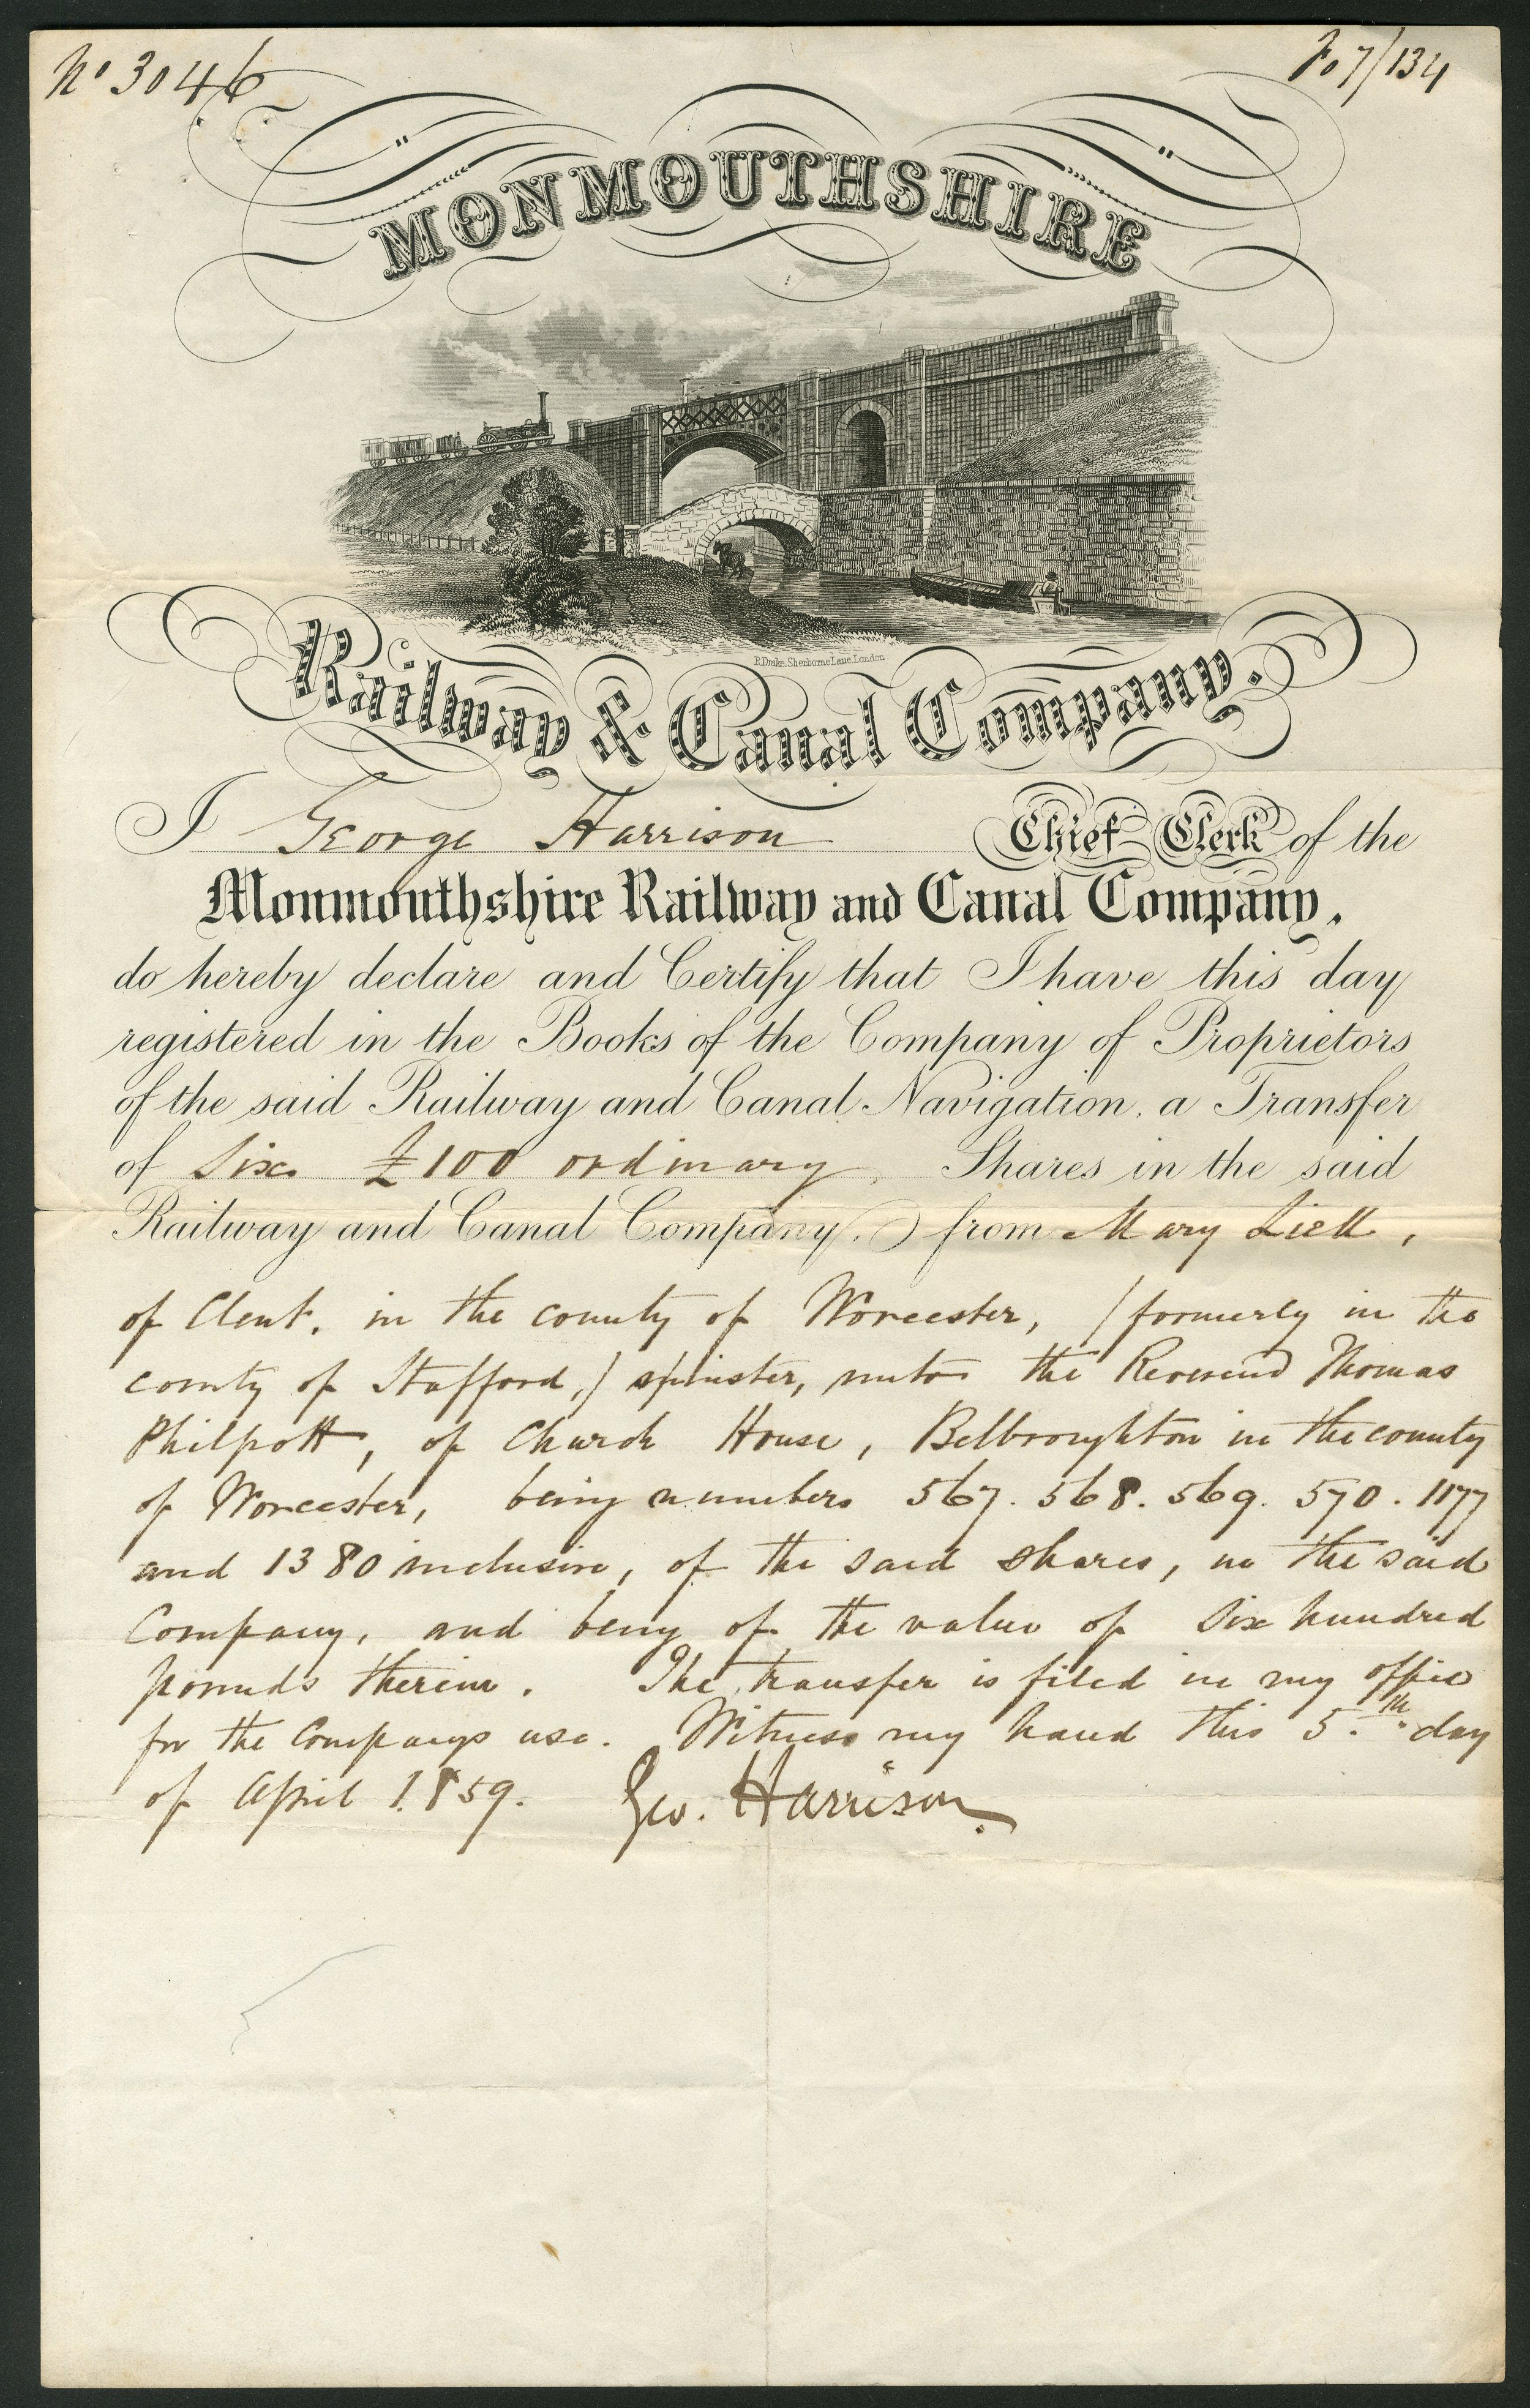 No 3046
Fo 7/134
MONMOUTHSHIRE
R.Drake, Sherborne Lane, London
Railway & Canal Company.
I George Harrison Chief Clerk of the
Monmouthshire Railway and Canal Company,
do hereby declare and Certify that I have this day
registered in the Books of the Company of Proprietors
of the said Railway and Canal Navigation, a Transfer
of Six £100 ordinary Shares in the said
Railway and Canal Company, from Mary
of Clent, in the county of Worcester, (formerly in the
county of Stafford,) spinster, unto the Reverend Thomas
Philpott, of Church House, Belbroughton in the county
of Worcester, being numbers 567. 568. 569. 570. 1177
and 1380 inclusive, of the said shares, in the said
Company, and being of the value of Six hundred
pounds therein. The transfer is filed in my office
for the Companys use. Witness my hand this 5.th day
of April 1859. Geo. Harrison.